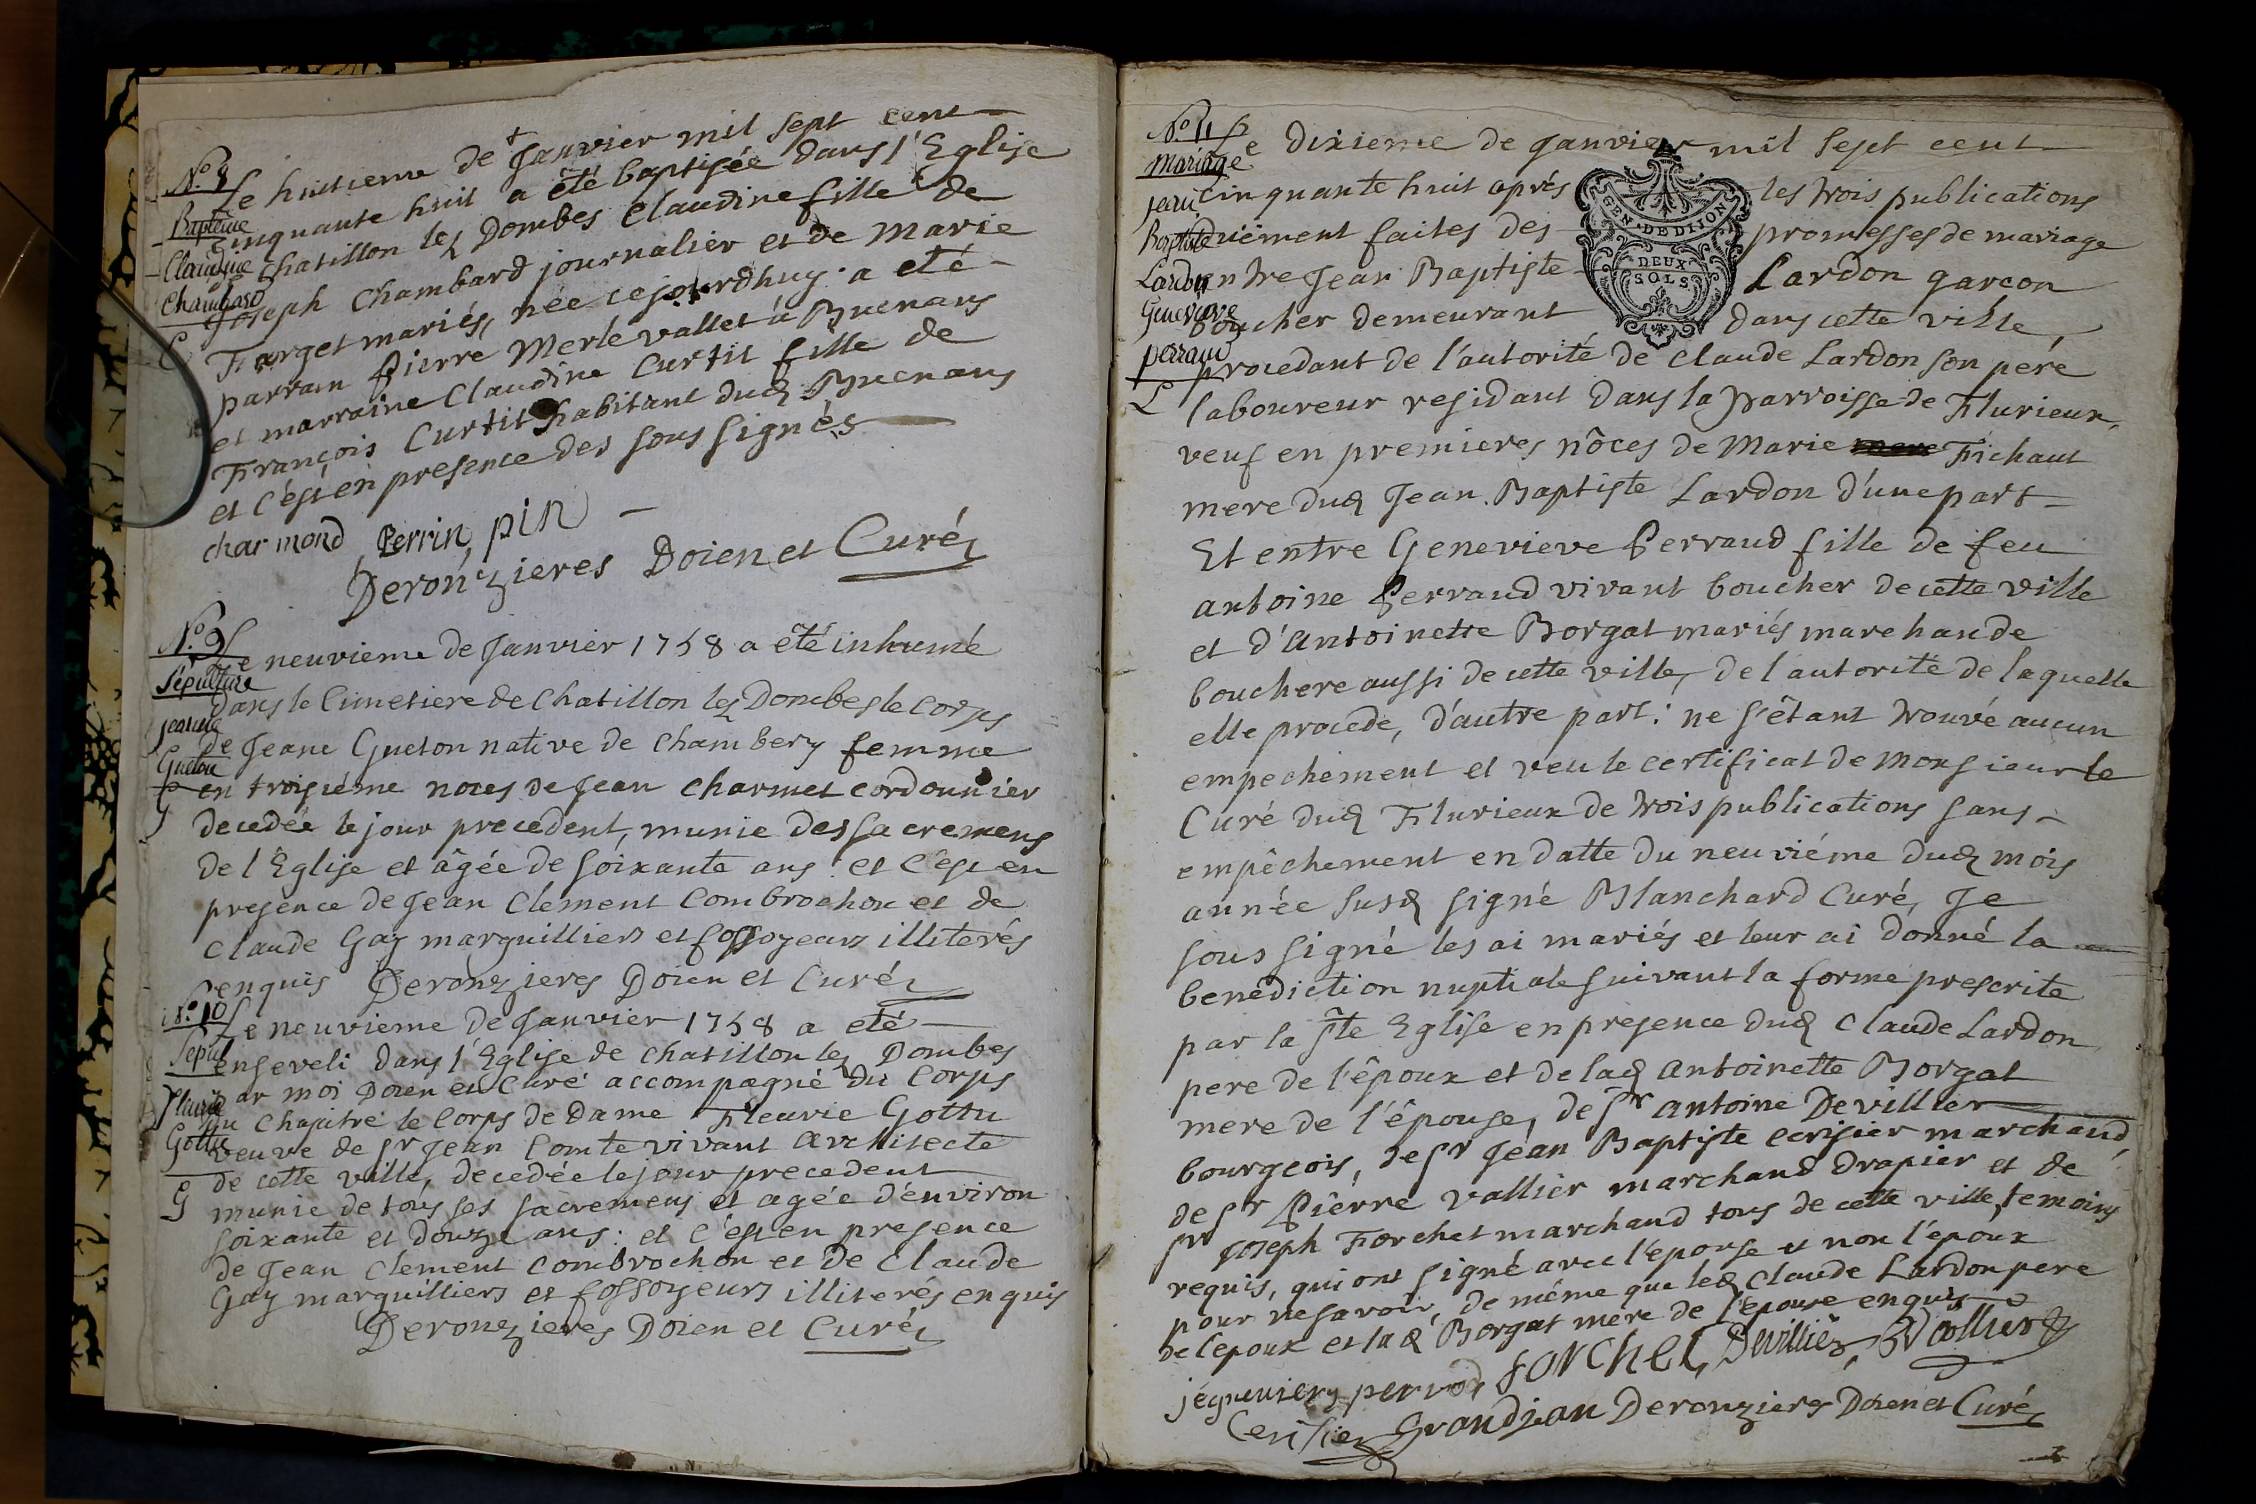 N.° 8
Baptème
Claudine
Chambard
Le huitieme de Janvier mil sept cent
cinquante huit a été baptisée dans l'Eglise
de chatillon lez Dombes Claudine fille de
Joseph Chambard journalier et de Marie
Farget mariés, née cejourdhuy: a eté
parrain pierre Merle vallet à Buenans
et marraine Claudine Curtit fille de
François Curtit habitant dud Buenans
et c'est en presence des sous signés
charmond Perrin pin
Deronzieres Doien et Curé
N.° 9
Sépulture
jeanne
Gueton
Le neuvieme de Janvier 1758 a été inhumé
dans le Cimetiere de Chatillon lez Dombes le Corps
de Jeane Gueton native de Chambery femme
en troisiéme noces de Jean Charmet cordonnier
decedée le jour precedent, munie des sacremens
de l'Eglise et âgée de soixante ans: et C'est en
presence de Jean Clement Combrochon et de
Claude Gay marguilliers et fossoyeurs illiterés
enquis Deronzieres Doien et Curé
N.° 10
Sepul
Fleurie
Gottu
G
Le neuvieme de Janvier 1758 a eté
enseveli dans l'Eglise de Chatillon lez Dombes
par moi Doien et Curé accompagné du Corps
du Chapitre le Corps de Dame Fleurie Gottu
veuve de Sr Jean Comte vivant Architecte
de cette ville, decedée le jour precedent
munie de tous ses sacremens et agée d'environ
soixante et douze ans: et C'est en presence
de Jean Clement Combrochon et de Claude
Gay marguilliers et fossoyeurs illiterés enquis
Deronzieres Doien et Curé
N.° 11
Mariage
jean
Baptiste
Lardon
Genevieve
perraud
L
Le dixieme de Janvier mil sept cent
cinquante huit aprés les trois publications
duement faites des promesses de mariage
entre Jean Baptiste Lardon garcon
boucher demeurant dans cette ville
procedant de l'autorité de Claude Lardon son pere
laboureur residant dans la parroisse de Flurieux
veuf en premieres nôces de Marie Fichaut
mere dud Jean Baptiste Lardon d'une part
Et entre Genevieve Perraud fille de feu
antoine Perraud vivant boucher de cette ville
et d'Antoinette Borgat mariés marchande
bouchere aussi de cette ville, de l'autorité de laquelle
elle procede, d'autre part: ne s'étant trouvé aucun
empechement et veu le certificat de Monsieur le
Curé dud Flurieux de trois publications sans
empêchement en datte du neuviéme dud mois
année susd signé Blanchard Curé, Je
sous signé les ai mariés et leur ai donné la
benediction nuptiale suivant la forme prescrite
par la ste Eglise en presence dud Claude Lardon
pere de l'époux et de lad Antoinette Borgat
mere de l'épouse, de Sr Antoine Devillier
bourgeois, de Sr Jean Baptiste cerisier marchand
de Sr Pierre vallier marchand Drapier et de
Sr Joseph Forchet marchand tous de cette ville, temoins
requis, qui ont signé avec l'epouse et non l'époux
pour ne savoir, de même que led Claude Lardon pere
de l'epoux et lad Borgat mere de l'épouse enquis
GEN. DE DIJON
DEUX
SOLS
FORChet, Devillier, Vallier
Cerisier Grandjean Deronzieres Doien et Curé